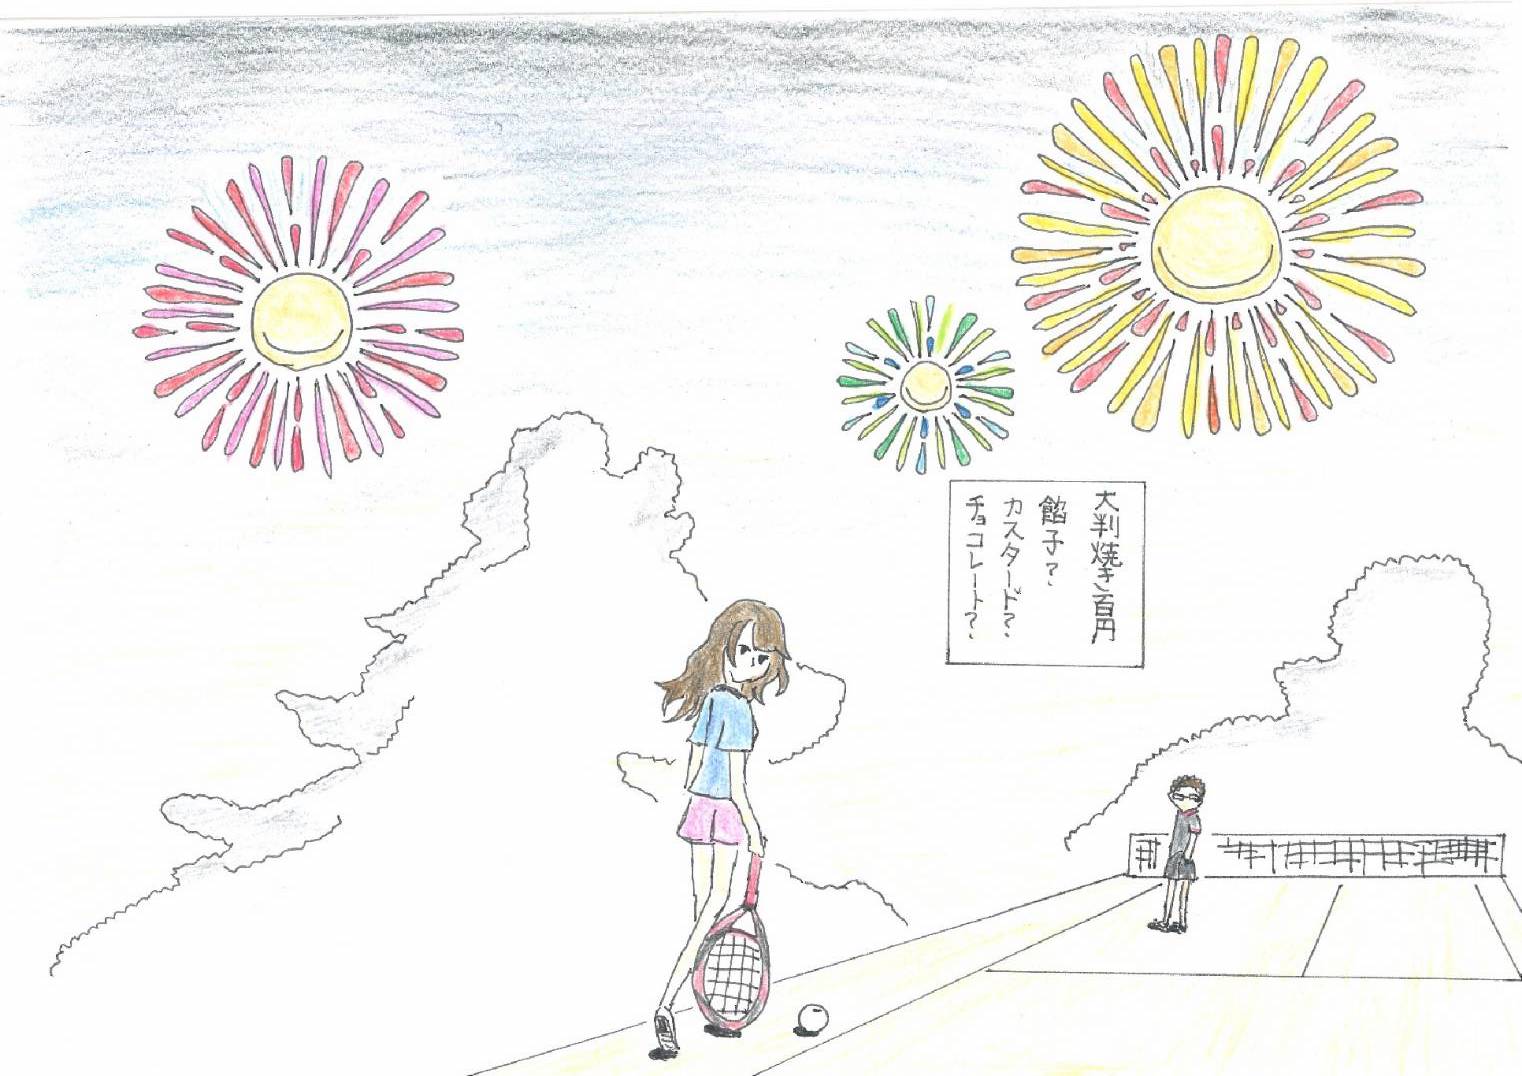 大判焼き百円
餡子？
カスタード？
チョコレート？